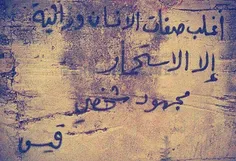 أغلب صفات الإنسان وراثية
إلا الاستحمار
مجهود شخصي
قيس